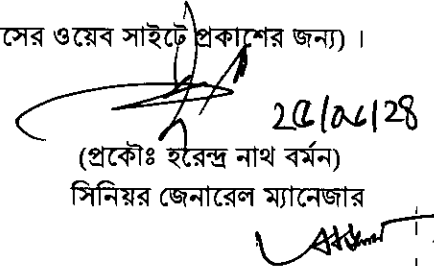 সের ওয়েব সাইটে প্রকাশের জন্য) ।
(প্রকৌঃ হরেন্দ্র নাথ বর্মন)
সিনিয়র জেনারেল ম্যানেজার